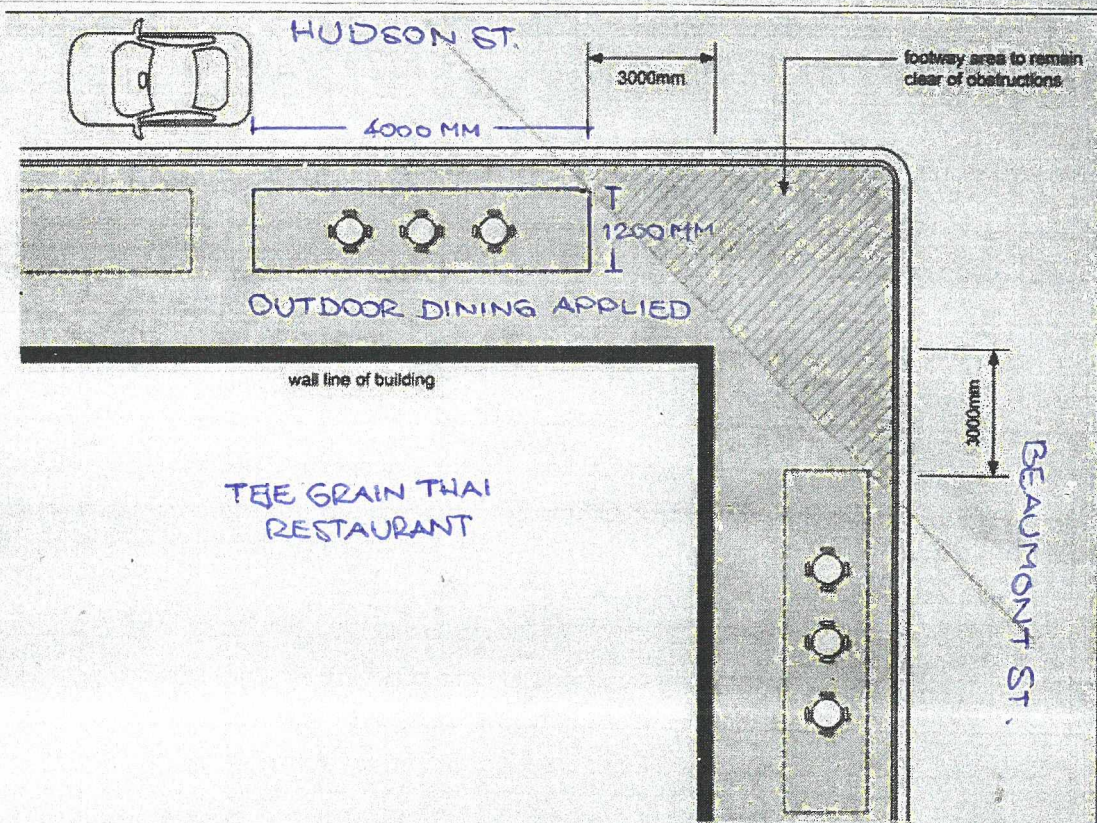 HUDSON ST.
3000mm
footway area to remain
clear of obstructions
4000 MM
1200 MM
OUTDOOR DINING APPLIED
wall line of building
3000mm
THE GRAIN THAI
RESTAURANT
BEAUMONT ST.